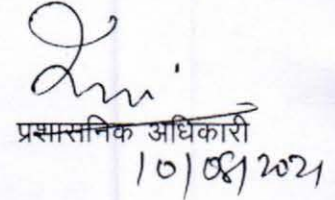 प्रशासनिक अधिकारी
10/08/2021